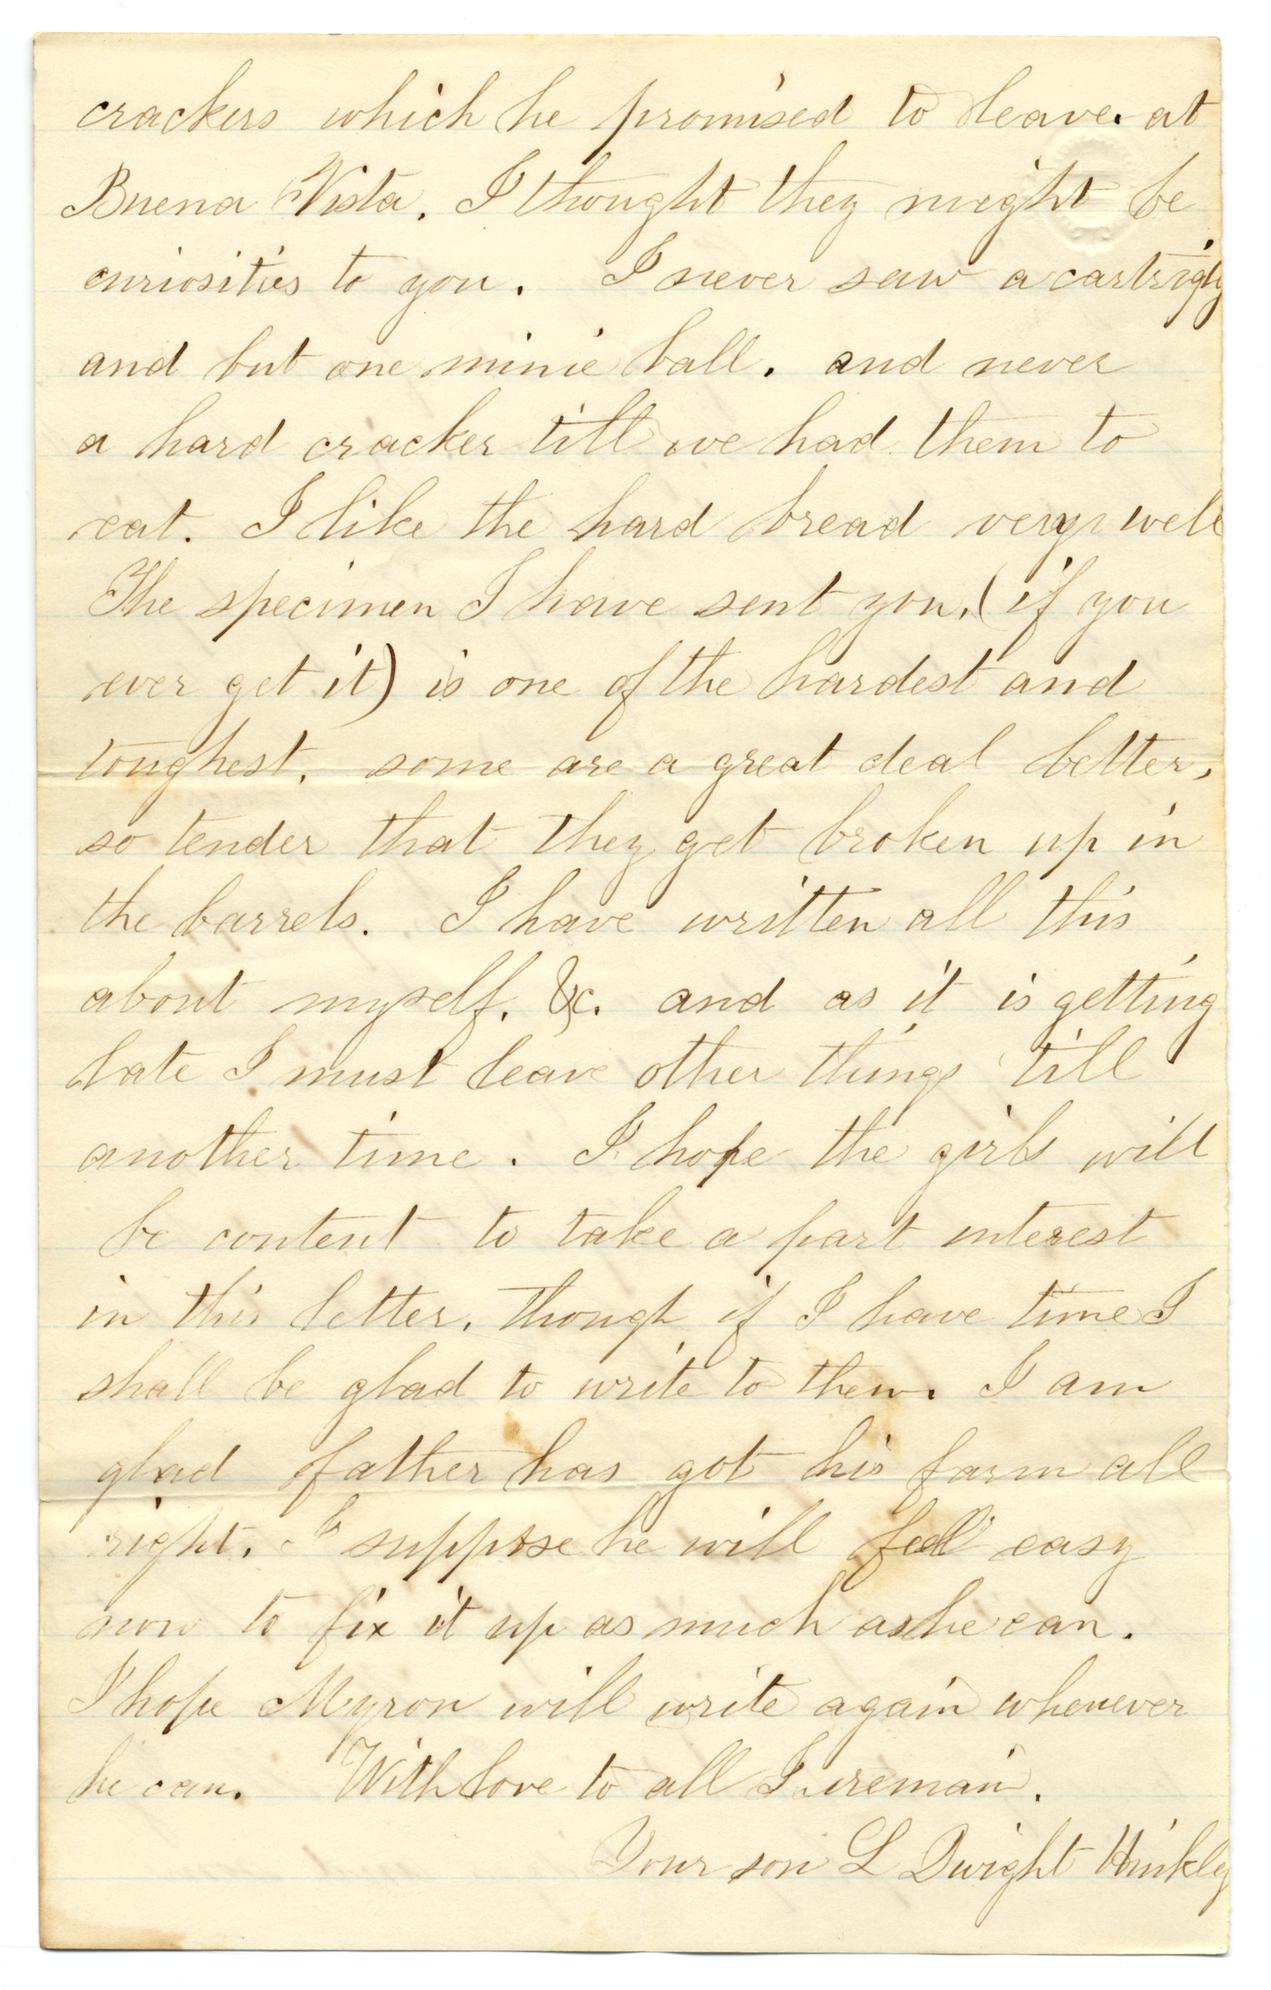 crackers which he promised to leave. at
Buena Vista. I thought they might be
curiosities to you. I never saw a cartrige
and but one minie ball. and never
a hard cracker till we had them to
eat. I like the hard bread very well
The specimen I have sent you, (if you
ever get it) is one of the hardest and
toughest. some are a great deal better,
so tender that they get broken up in
the barrels. I have written all this
about myself. &c. and as it is getting
late I must leave other things till
another time. I hope the girls will
be content to take a part interest
in this letter. though if I have time I
shall be glad to write to them. I am
glad father has got his farm all
right. I suppose he will feel easy
now to fix it up as much as he can.
I hope Myron will write again whenever
he can. With love to all I remain.
Your son L Dwight Hinkley